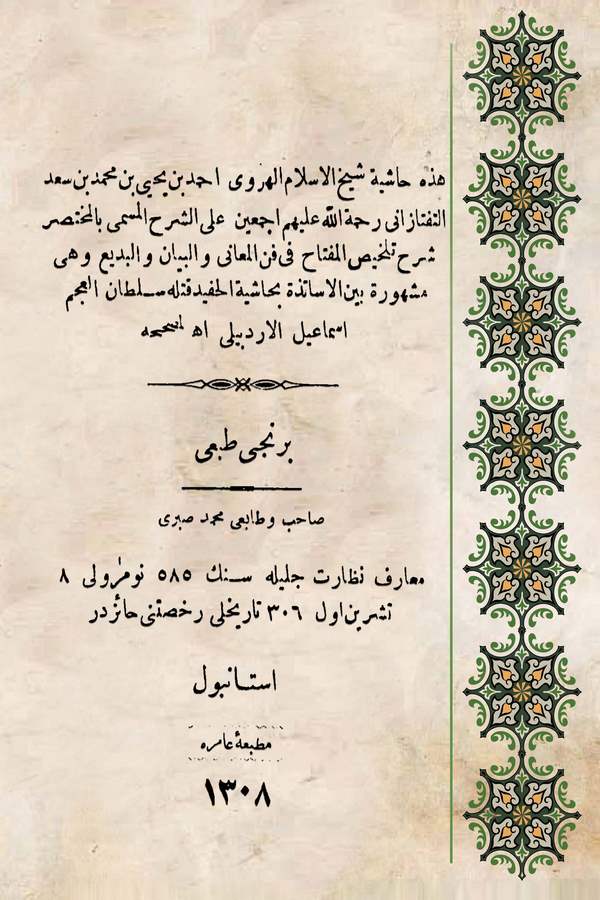 هذه حاشية شيخ الاسلام الهروى احمد بن يحيى بن محمد بن سعد
التفتازانى رحمة الله عليهم اجمعين على الشرح المسمى بالمختصر
شرح تلخيص المفتاح فى فن المعانى والبيان والبديع وهى
مشهورة بين الاساتذة بحاشية الحفيد قتله سلطان العجم
اسماعيل الاردبيلى اه لمصححه
برنجى طبعى
صاحب وطابعى محمد صبرى
معارف نظارت جليله سنك ٥٨٥ نومرولى ٨
تشرين اول ٣٠٦ تاريخلى رخصتنى حائزدر
استانبول
مطبعۀ عامره
١٣٠٨